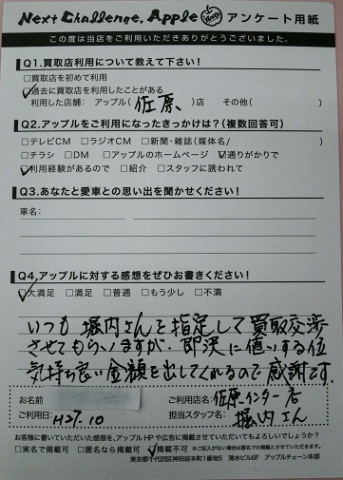 Next Challenge, Apple アンケート用紙
この度は当店をご利用いただきありがとうございました。
Q1.買取店利用について教えて下さい!
□買取店を初めて利用
☑過去に買取店を利用したことがある
利用した店舗: アップル( 佐原 )店 その他( )
Q2.アップルをご利用になったきっかけは?(複数回答可)
□テレビCM □ラジオCM □新聞・雑誌(媒体名/ )
□チラシ □DM □アップルのホームページ ☑通りがかりで
☑利用経験があるので □紹介 □スタッフに誘われて
Q3.あなたと愛車との思い出を聞かせください!
車名:
Q4.アップルに対する感想をぜひお書きください!
☑大満足 □満足 □普通 □もう少し □不満
いつも堀内さんを指定して買取交渉
させてもらいますが、即決に値いする位
気持ち良い金額を出してくれるので感謝です。
お名前
ご利用店名: 佐原インター店
ご利用日: H27.10
担当スタッフ名: 堀内さん
お客様に書いていただいた感想を、アップルHPや広告に掲載させていただいてもよろしいでしょうか?
□実名で掲載可 □匿名なら掲載可 ☑掲載不可
東京都千代田区神田岩本町1番地5 清水ビル6F アップルチェーン本部